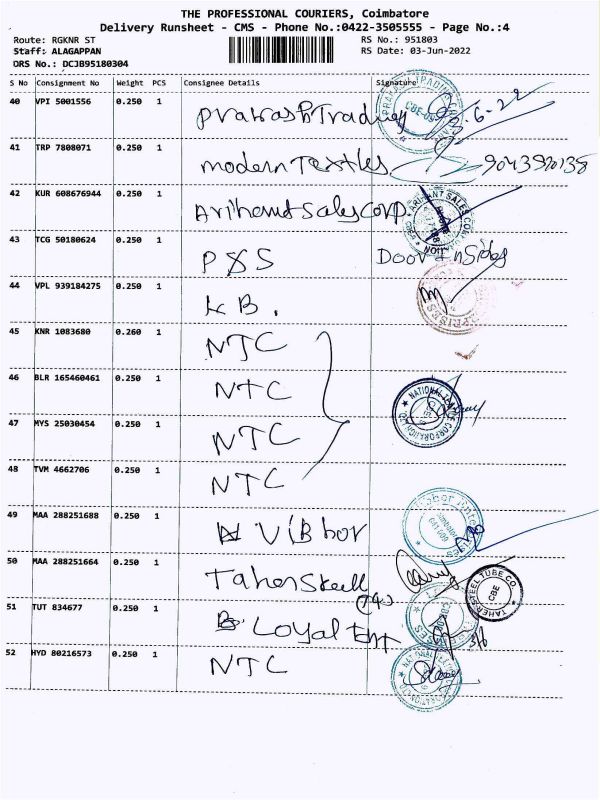 THE PROFESSIONAL COURIERS, Coimbatore
Delivery Runsheet - CMS - Phone No.:0422-3505555 - Page No.:4
Route: RGKNR ST
RS No.: 951803
Staff: ALAGAPPAN
RS Date: 03-Jun-2022
DRS No.: DCJB95180304
S No Consignment No Weight PCS Consignee Details Signature
40 VPI 5001556 0.250 1 Prakash Trading
41 TRP 7808071 0.250 1 modern Textiles
42 KUR 608676944 0.250 1 Arihant Sales Corp. ARIHANT SALES CORPORATION
43 TCG 50180624 0.250 1 PXS Door Insides
44 VPL 939184275 0.250 1 KB.
45 KNR 1083680 0.260 1 NTC
46 BLR 165460461 0.250 1 NTC
47 MYS 25030454 0.250 1 NTC
48 TVM 4662706 0.250 1 NTC
49 MAA 288251688 0.250 1 Vibhor
50 MAA 288251664 0.250 1 Taher Steel TAHER STEEL TUBE CO. CBE
51 TUT 834677 0.250 1 Loyal Ent
52 HYD 80216573 0.250 1 NTC